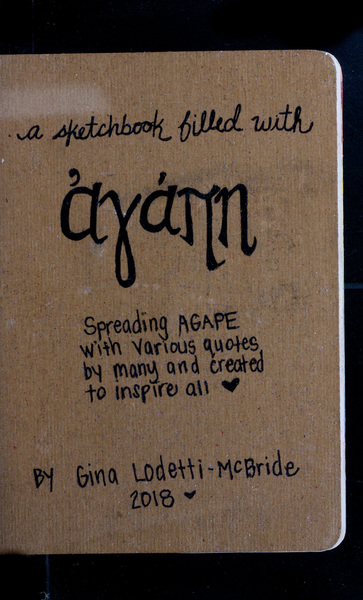 a sketchbook filled with
ἀγάπη
Spreading AGAPE
with various quotes
by many and created
to inspire all ♥
BY Gina Lodetti-McBride
2018 ♥